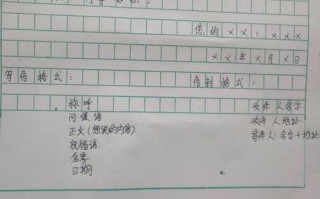 您的××：×××
××年×月×日
写信格式： 信封格式：
称呼 收件人名字
问候语 收件人地址
正文（想说的内容） 寄件人：名字+地址
祝福语
名字
日期